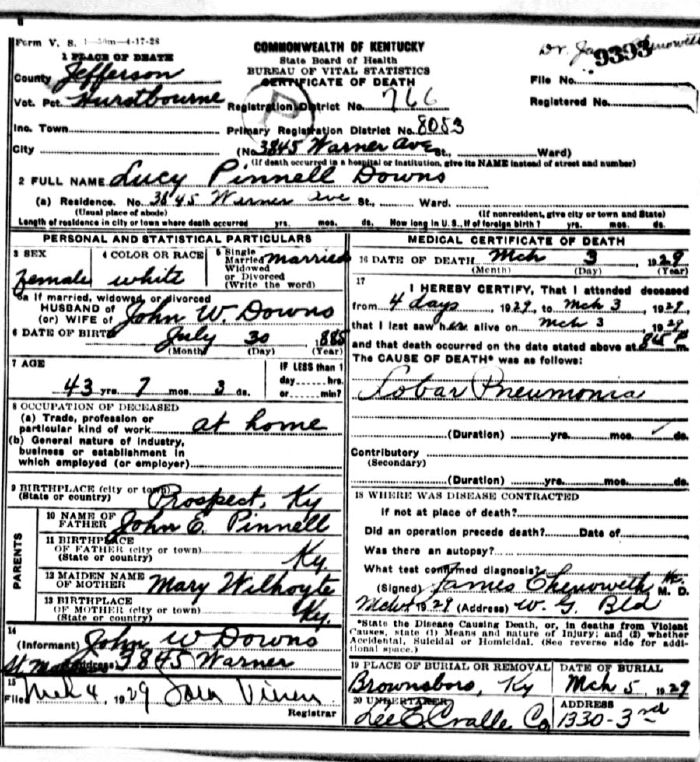 Form V. S. 1-50m-4-17-28
COMMONWEALTH OF KENTUCKY
State Board of Health
BUREAU OF VITAL STATISTICS
CERTIFICATE OF DEATH
Dr. Chenoweth
9393
File No.
Registered No.
1 PLACE OF DEATH
County Jefferson
Vot. Pct. Hurstbourne
Registration District No. 766
Inc. Town
Primary Registration District No. 8053
City
(No. 3845 Warner Ave St., Ward)
(If death occurred in a hospital or institution, give its NAME instead of street and number)
2 FULL NAME Lucy Pinnell Downs
(a) Residence. No. 3845 Warner Ave St., Ward.
(Usual place of abode)
(If nonresident, give city or town and State)
Length of residence in city or town where death occurred yrs. mos. ds. How long in U. S., if of foreign birth? yrs. mos. ds.
PERSONAL AND STATISTICAL PARTICULARS
3 SEX
female
4 COLOR OR RACE
white
5 Single
Married
Widowed
or Divorced
(Write the word)
married
5a If married, widowed, or divorced
HUSBAND of
(or) WIFE of John W. Downs
6 DATE OF BIRTH July 30 1885
(Month) (Day) (Year)
7 AGE
43 yrs. 7 mos. 3 ds.
IF LESS than 1
day hrs.
or min?
8 OCCUPATION OF DECEASED
(a) Trade, profession or
particular kind of work at home
(b) General nature of industry,
business or establishment in
which employed (or employer)
9 BIRTHPLACE (city or town)
(State or country) Prospect, Ky
PARENTS
10 NAME OF
FATHER John E. Pinnell
11 BIRTHPLACE
OF FATHER (city or town)
(State or country) Ky.
12 MAIDEN NAME
OF MOTHER Mary Wilhoyte
13 BIRTHPLACE
OF MOTHER (city or town)
(State or country) Ky.
14
(Informant) John W Downs
(Address) 3845 Warner
St. Mat
15
Filed Mch 4, 1929
Registrar
MEDICAL CERTIFICATE OF DEATH
16 DATE OF DEATH Mch 3 1929
(Month) (Day) (Year)
17
I HEREBY CERTIFY, That I attended deceased
from 4 days, 1929, to Mch 3, 1929,
that I last saw her alive on Mch 3, 1929
and that death occurred on the date stated above at 845 P m.
The CAUSE OF DEATH* was as follows:
Lobar Pneumonia
(Duration) yrs. mos. ds.
Contributory
(Secondary)
(Duration) yrs. mos. ds.
18 WHERE WAS DISEASE CONTRACTED
If not at place of death?
Did an operation precede death? Date of
Was there an autopsy?
What test confirmed diagnosis?
(Signed) James Chenoweth M. D.
1929 (Address) W. G. Bld
*State the Disease Causing Death, or, in deaths from Violent
Causes, state (1) Means and nature of Injury; and (2) whether
Accidental, Suicidal or Homicidal. (See reverse side for addi-
tional space.)
19 PLACE OF BURIAL OR REMOVAL
Brownsboro, Ky
DATE OF BURIAL
Mch 5, 1929
20 UNDERTAKER
Lee E. Cralle Co
ADDRESS
1330-3rd